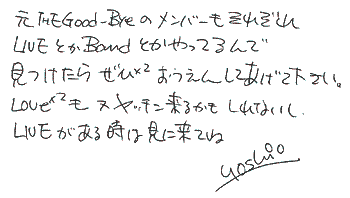 元 THE Good-Bye のメンバーもそれぞれ
LIVE とか Band とかやってるんで
見つけたら ぜひ×2 おうえんしてあげて下さい。
LOVE×2 も スヤッチに来るかもしれないし
LIVE がある時は見に来てね
Yoshio